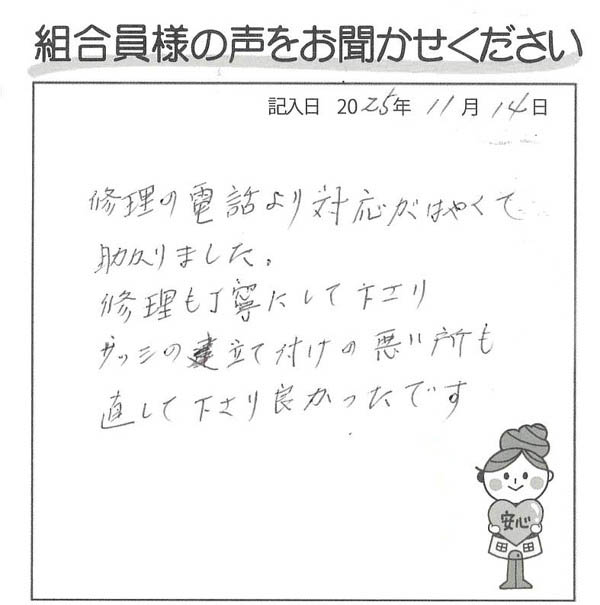 組合員様の声をお聞かせください
記入日 2025年 11月 14日
修理の電話より対応がはやくて
助かりました。
修理も丁寧にして下さり
サッシの建立て付けの悪い所も
直して下さり良かったです
安心